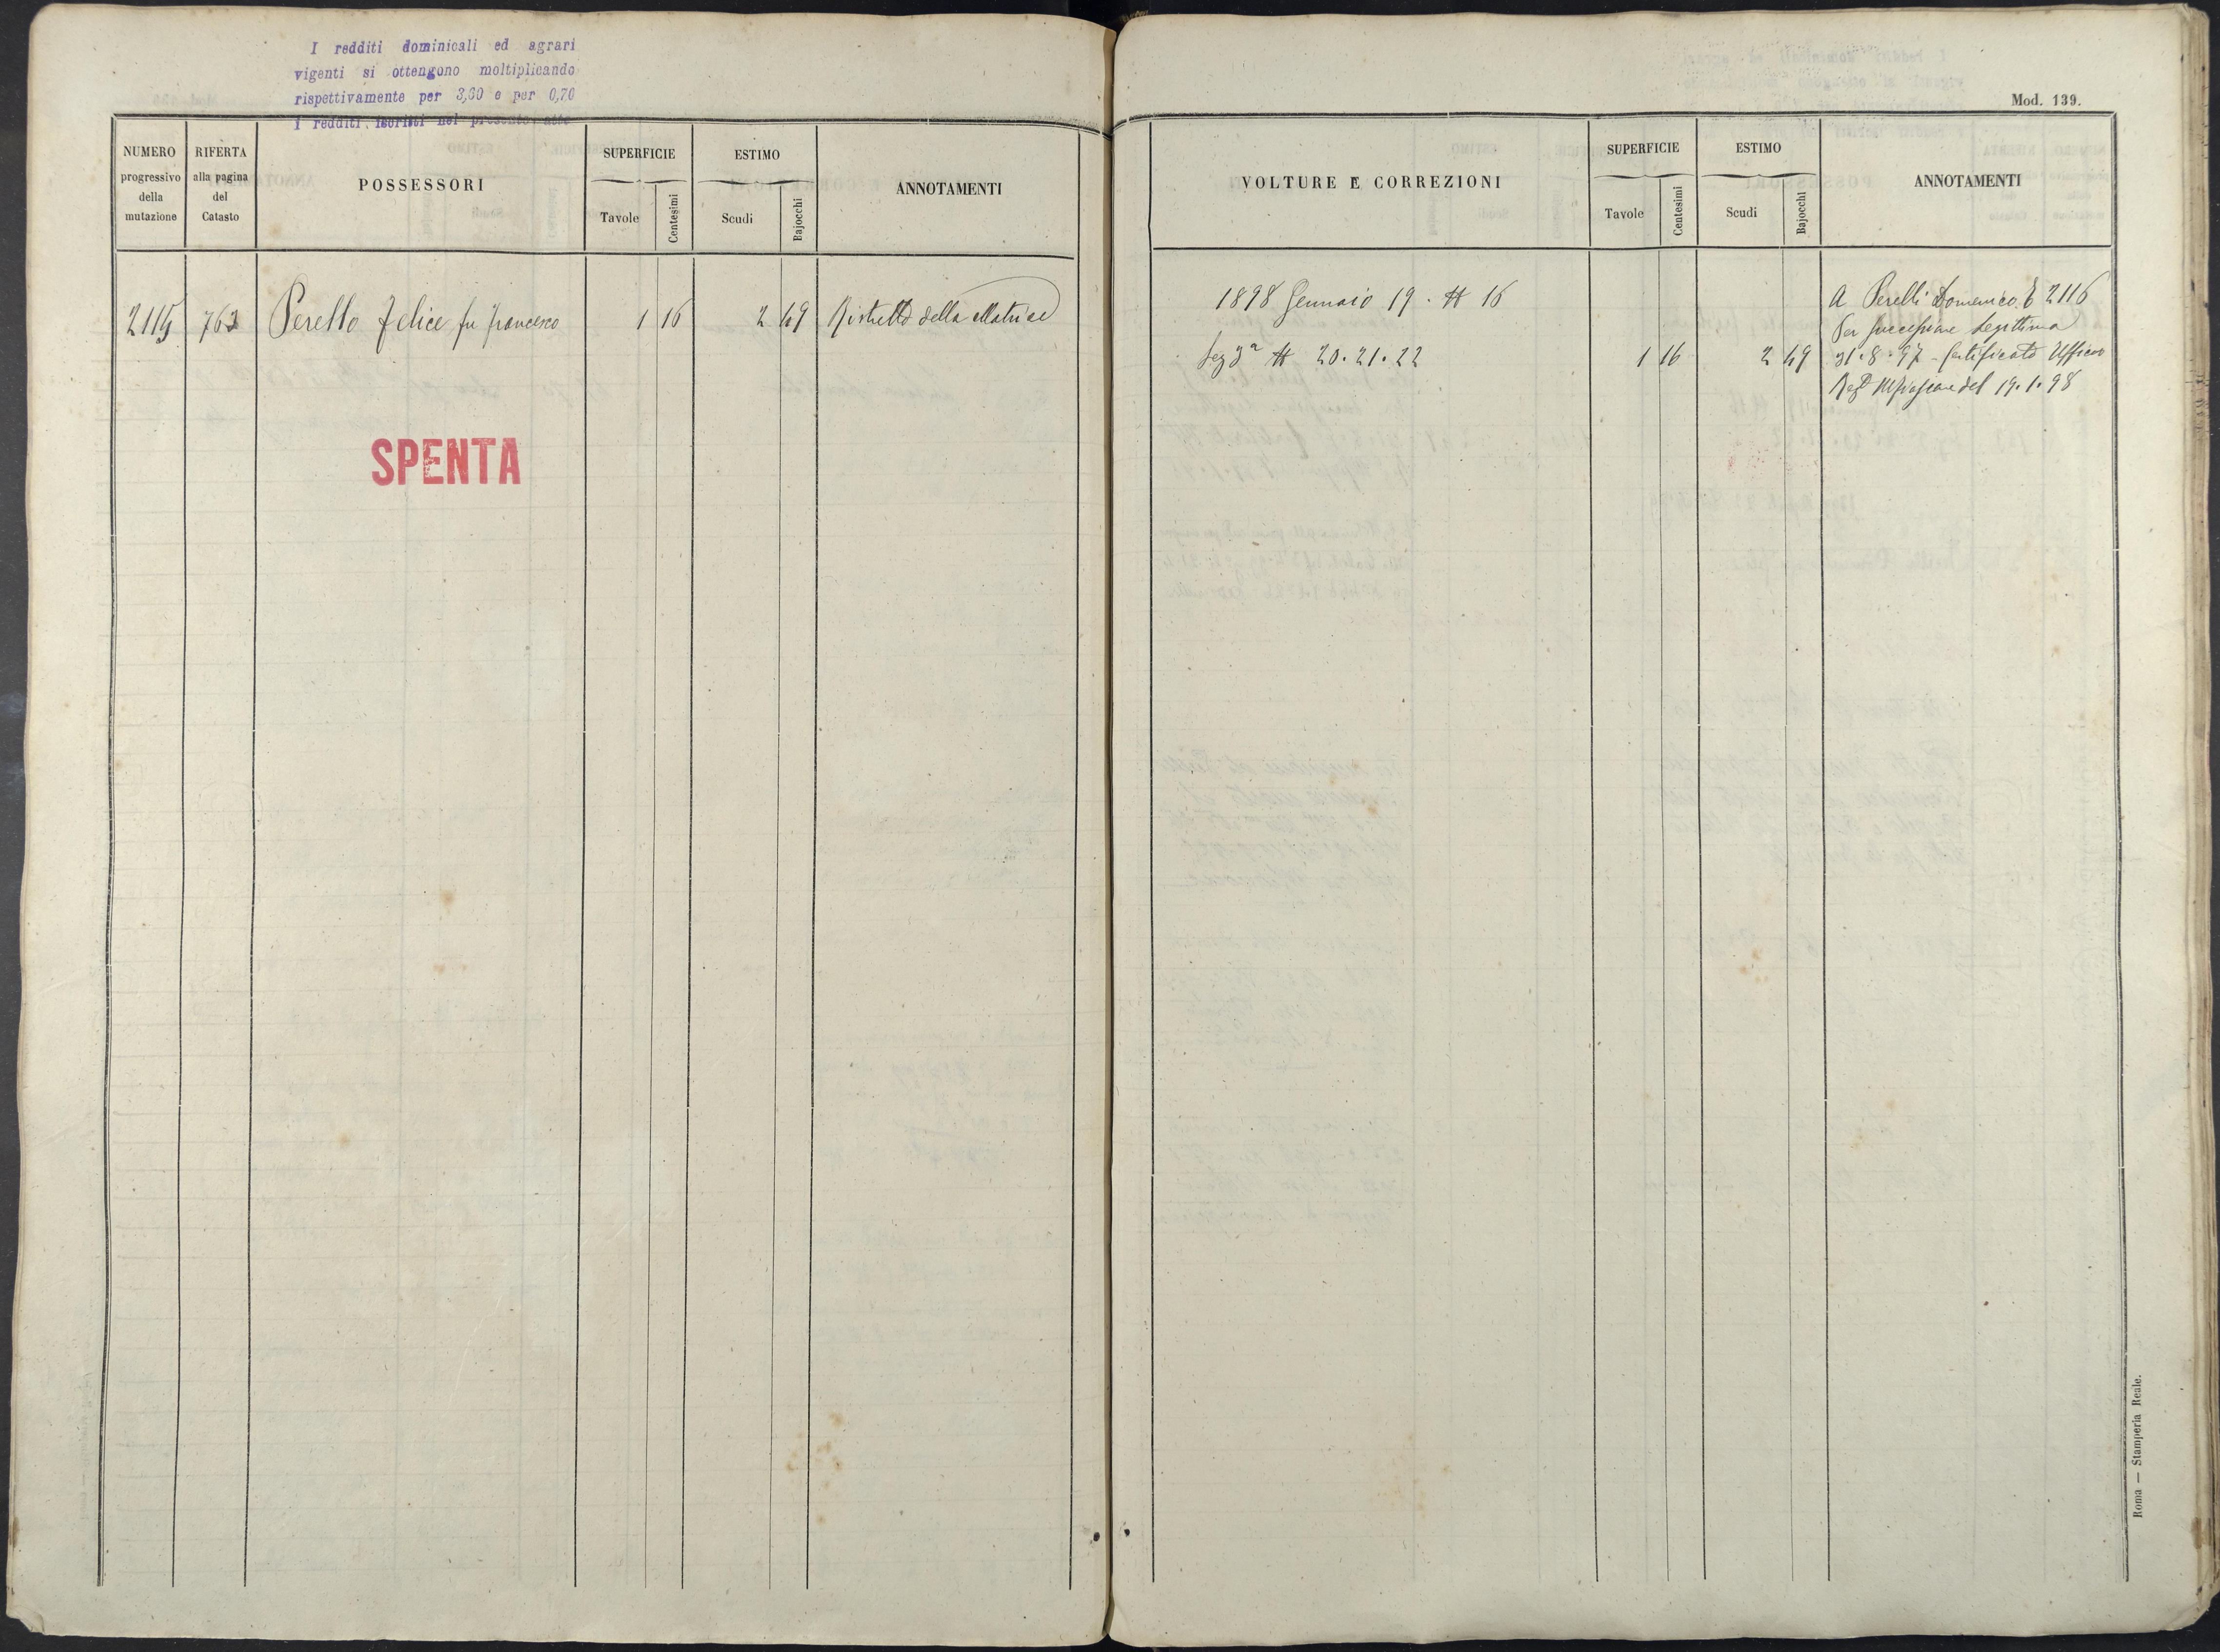 I redditi dominicali ed agrari
vigenti si ottengono moltiplicando
rispettivamente per 3,60 e per 0,70
I redditi iscritti nel presente atto
Mod. 139.
NUMERO
progressivo
della
mutazione
RIFERTA
alla pagina
del
Catasto
POSSESSORI
SUPERFICIE
Tavole
Centesimi
ESTIMO
Scudi
Bajocchi
ANNOTAMENTI
2115 763 Perello Felice fu Francesco 1 16 2 49 Ristretto della Matrice
SPENTA
VOLTURE E CORREZIONI
SUPERFICIE
Tavole
Centesimi
ESTIMO
Scudi
Bajocchi
ANNOTAMENTI
1898 Gennaio 19. N 16
Sez 3ª N 20.21.22 1 16 2 49
A Perelli Domenico E 2116
Per successione legittima
31.8.97 - Certificato Ufficio
del 19.1.98
Roma — Stamperia Reale.